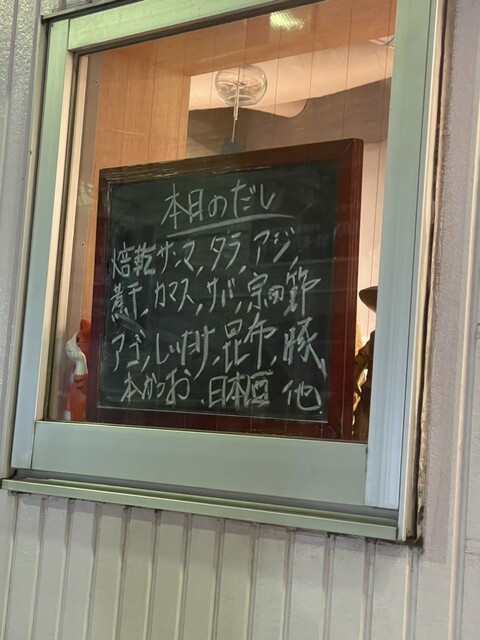 本日のだし
焙乾サンマ、タラ、アジ、
煮干、カマス、サバ、宗田節
アゴ、しいたけ、昆布、豚、
本かつお、日本酒 他